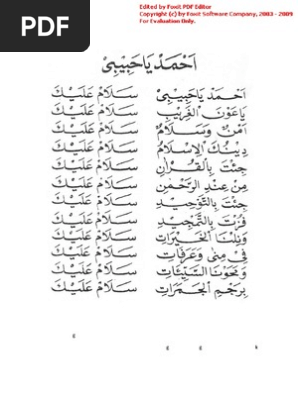 PDF
Edited by Foxit PDF Editor
Copyright (c) by Foxit Software Company, 2003 - 2009
For Evaluation Only.
اَحْمَدْ يَا حَبِيْبِيْ
اَحْمَدْ يَاحَبِيْبِيْ سَلَامْ عَلَيْكَ
يَاعَوْنَ الْغَرِيْبِ سَلَامْ عَلَيْكَ
اَمْنٌ وَسَلَامٌ سَلَامْ عَلَيْكَ
دِيْنُكَ الْاِسْلَامُ سَلَامْ عَلَيْكَ
جِئْتَ بِالْقُرْاٰنِ سَلَامْ عَلَيْكَ
مِنْ عِنْدِ الرَّحْمٰنِ سَلَامْ عَلَيْكَ
جِئْتَ بِالتَّوْحِيْدِ سَلَامْ عَلَيْكَ
فُزْتَ بِالتَّمْجِيْدِ سَلَامْ عَلَيْكَ
وَنِلْنَا الْخَيْرَاتِ سَلَامْ عَلَيْكَ
فِى مِنٰى وَعَرَفَاتِ سَلَامْ عَلَيْكَ
وَمَحَوْنَا السَّيِّئَاتِ سَلَامْ عَلَيْكَ
بِرَجْمِ الْجَمَرَاتِ سَلَامْ عَلَيْكَ